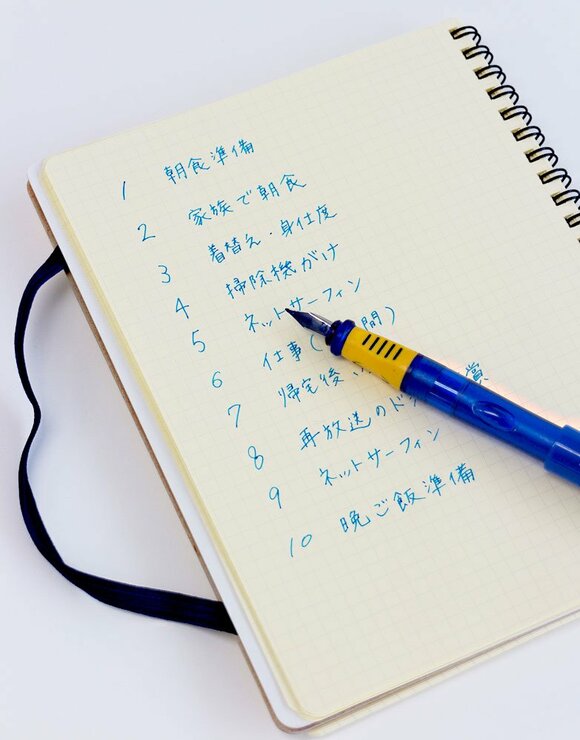 1 朝食準備
2 家族で朝食
3 着替え・身仕度
4 掃除機がけ
5 ネットサーフィン
6 仕事( 間)
7 帰宅後
8 再放送のド 賞
9 ネットサーフィン
10 晩ご飯準備